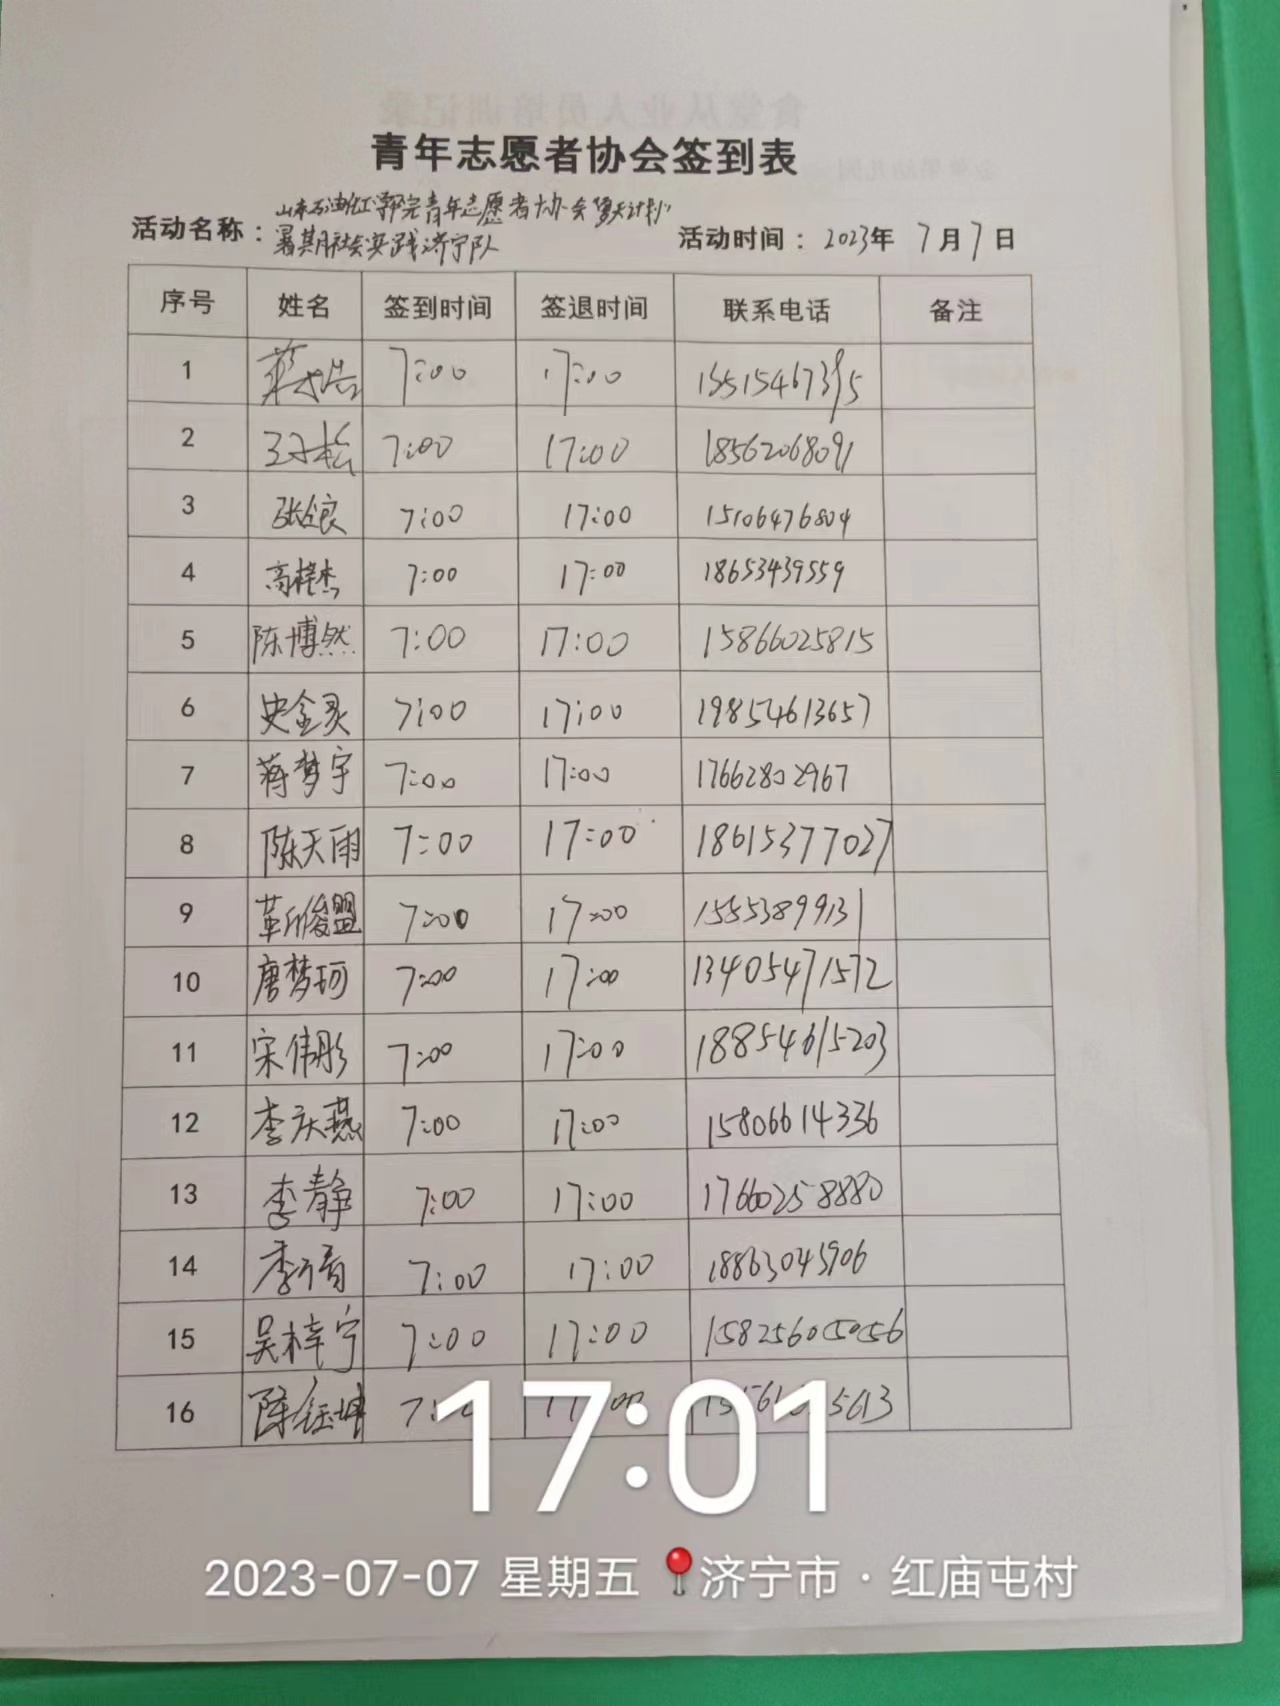 青年志愿者协会签到表
活动名称： 青年志愿者协会"夏天计划"
暑期社会实践济宁队 活动时间： 2023年 7月7日
序号 姓名 签到时间 签退时间 联系电话 备注
1 7:00 17:00
2 7:00 17:00 18562068091
3 7:00 17:00 15106476804
4 高梓杰 7:00 17:00 18653439559
5 陈博然 7:00 17:00 15866025815
6 史金灵 7:00 17:00 19854613657
7 蒋梦宇 7:00 17:00 17662802967
8 陈天雨 7:00 17:00 18615377027
9 靳俊盟 7:00 17:00 15553899131
10 唐梦珂 7:00 17:00 13405471572
11 宋伟彤 7:00 17:00 18854615203
12 李庆燕 7:00 17:00 15806614336
13 李静 7:00 17:00 17660258880
14 7:00 17:00 18863045906
15 吴梓宁 7:00 17:00
16 陈钰坤
17:01
2023-07-07 星期五 济宁市 · 红庙屯村